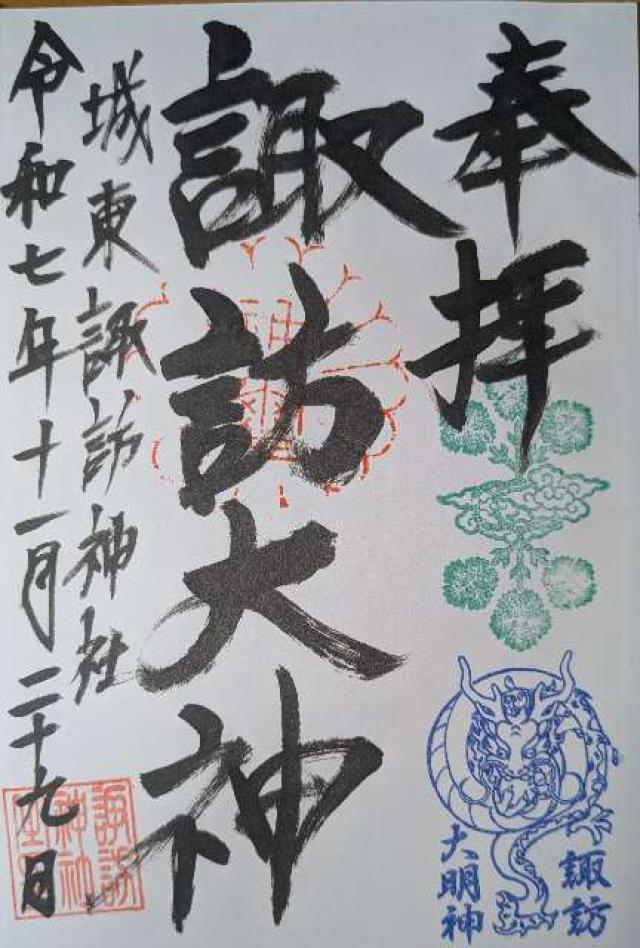 奉拝
諏訪大神
城東諏訪神社
令和七年十一月二十九日
諏訪
大明神